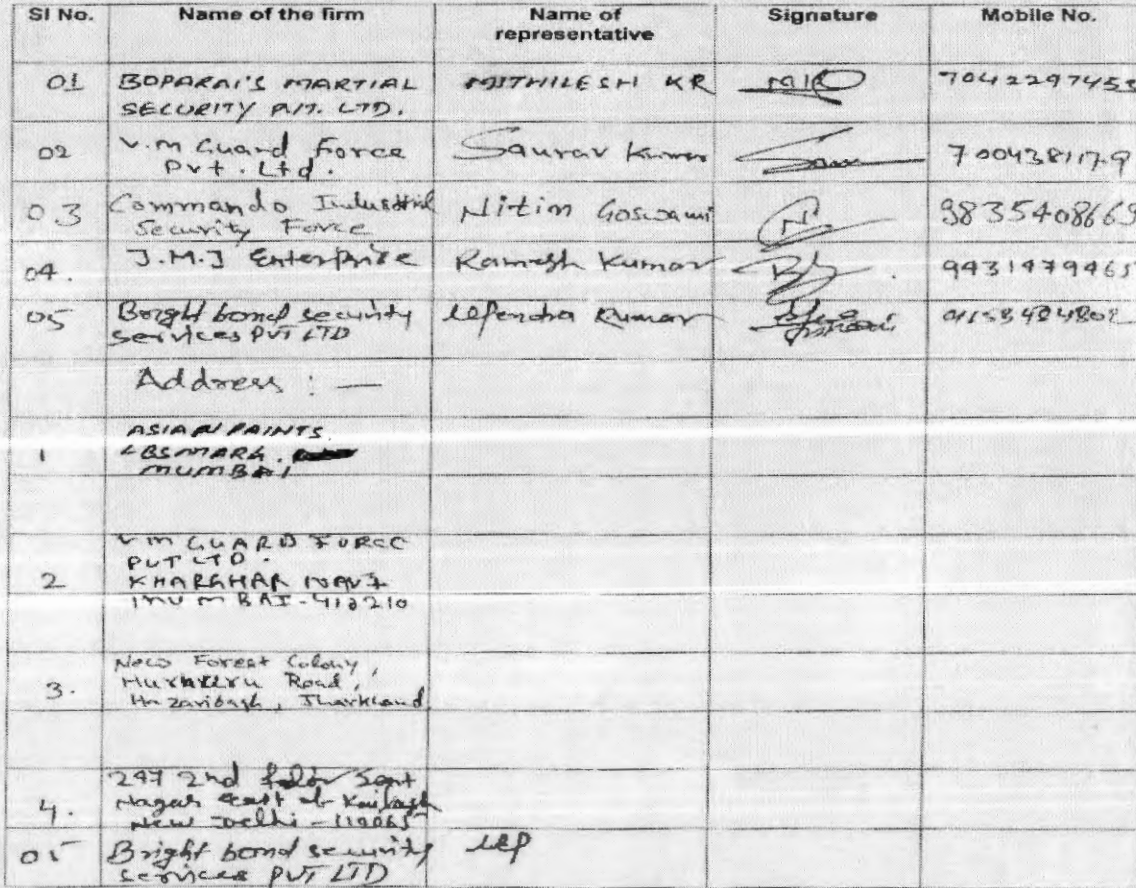 Sl No. Name of the firm Name of representative Signature Mobile No.
01 BOPARAI'S MARTIAL SECURITY PVT. LTD. MITHILESH KR
02 V.M Guard Force Pvt. Ltd. Saurav Kumar 7004381179
03 Commando Industrial Security Force Nitin Goswami
04. J.M.J Enterprise Ramesh Kumar
05 Bright bond security services PVT LTD Upendra Kumar
Address : —
ASIAN PAINTS
1 LBS MARG.
MUMBAI
V M GUARD FORCE
PVT LTD.
2 KHARGHAR NAVI
MUMBAI-410210
New Forest Colony,
3. Road,
Hazaribagh, Jharkhand
247 2nd
4. Nagar East of Kailash
New Delhi - 110065
05 Bright bond security
services PVT LTD